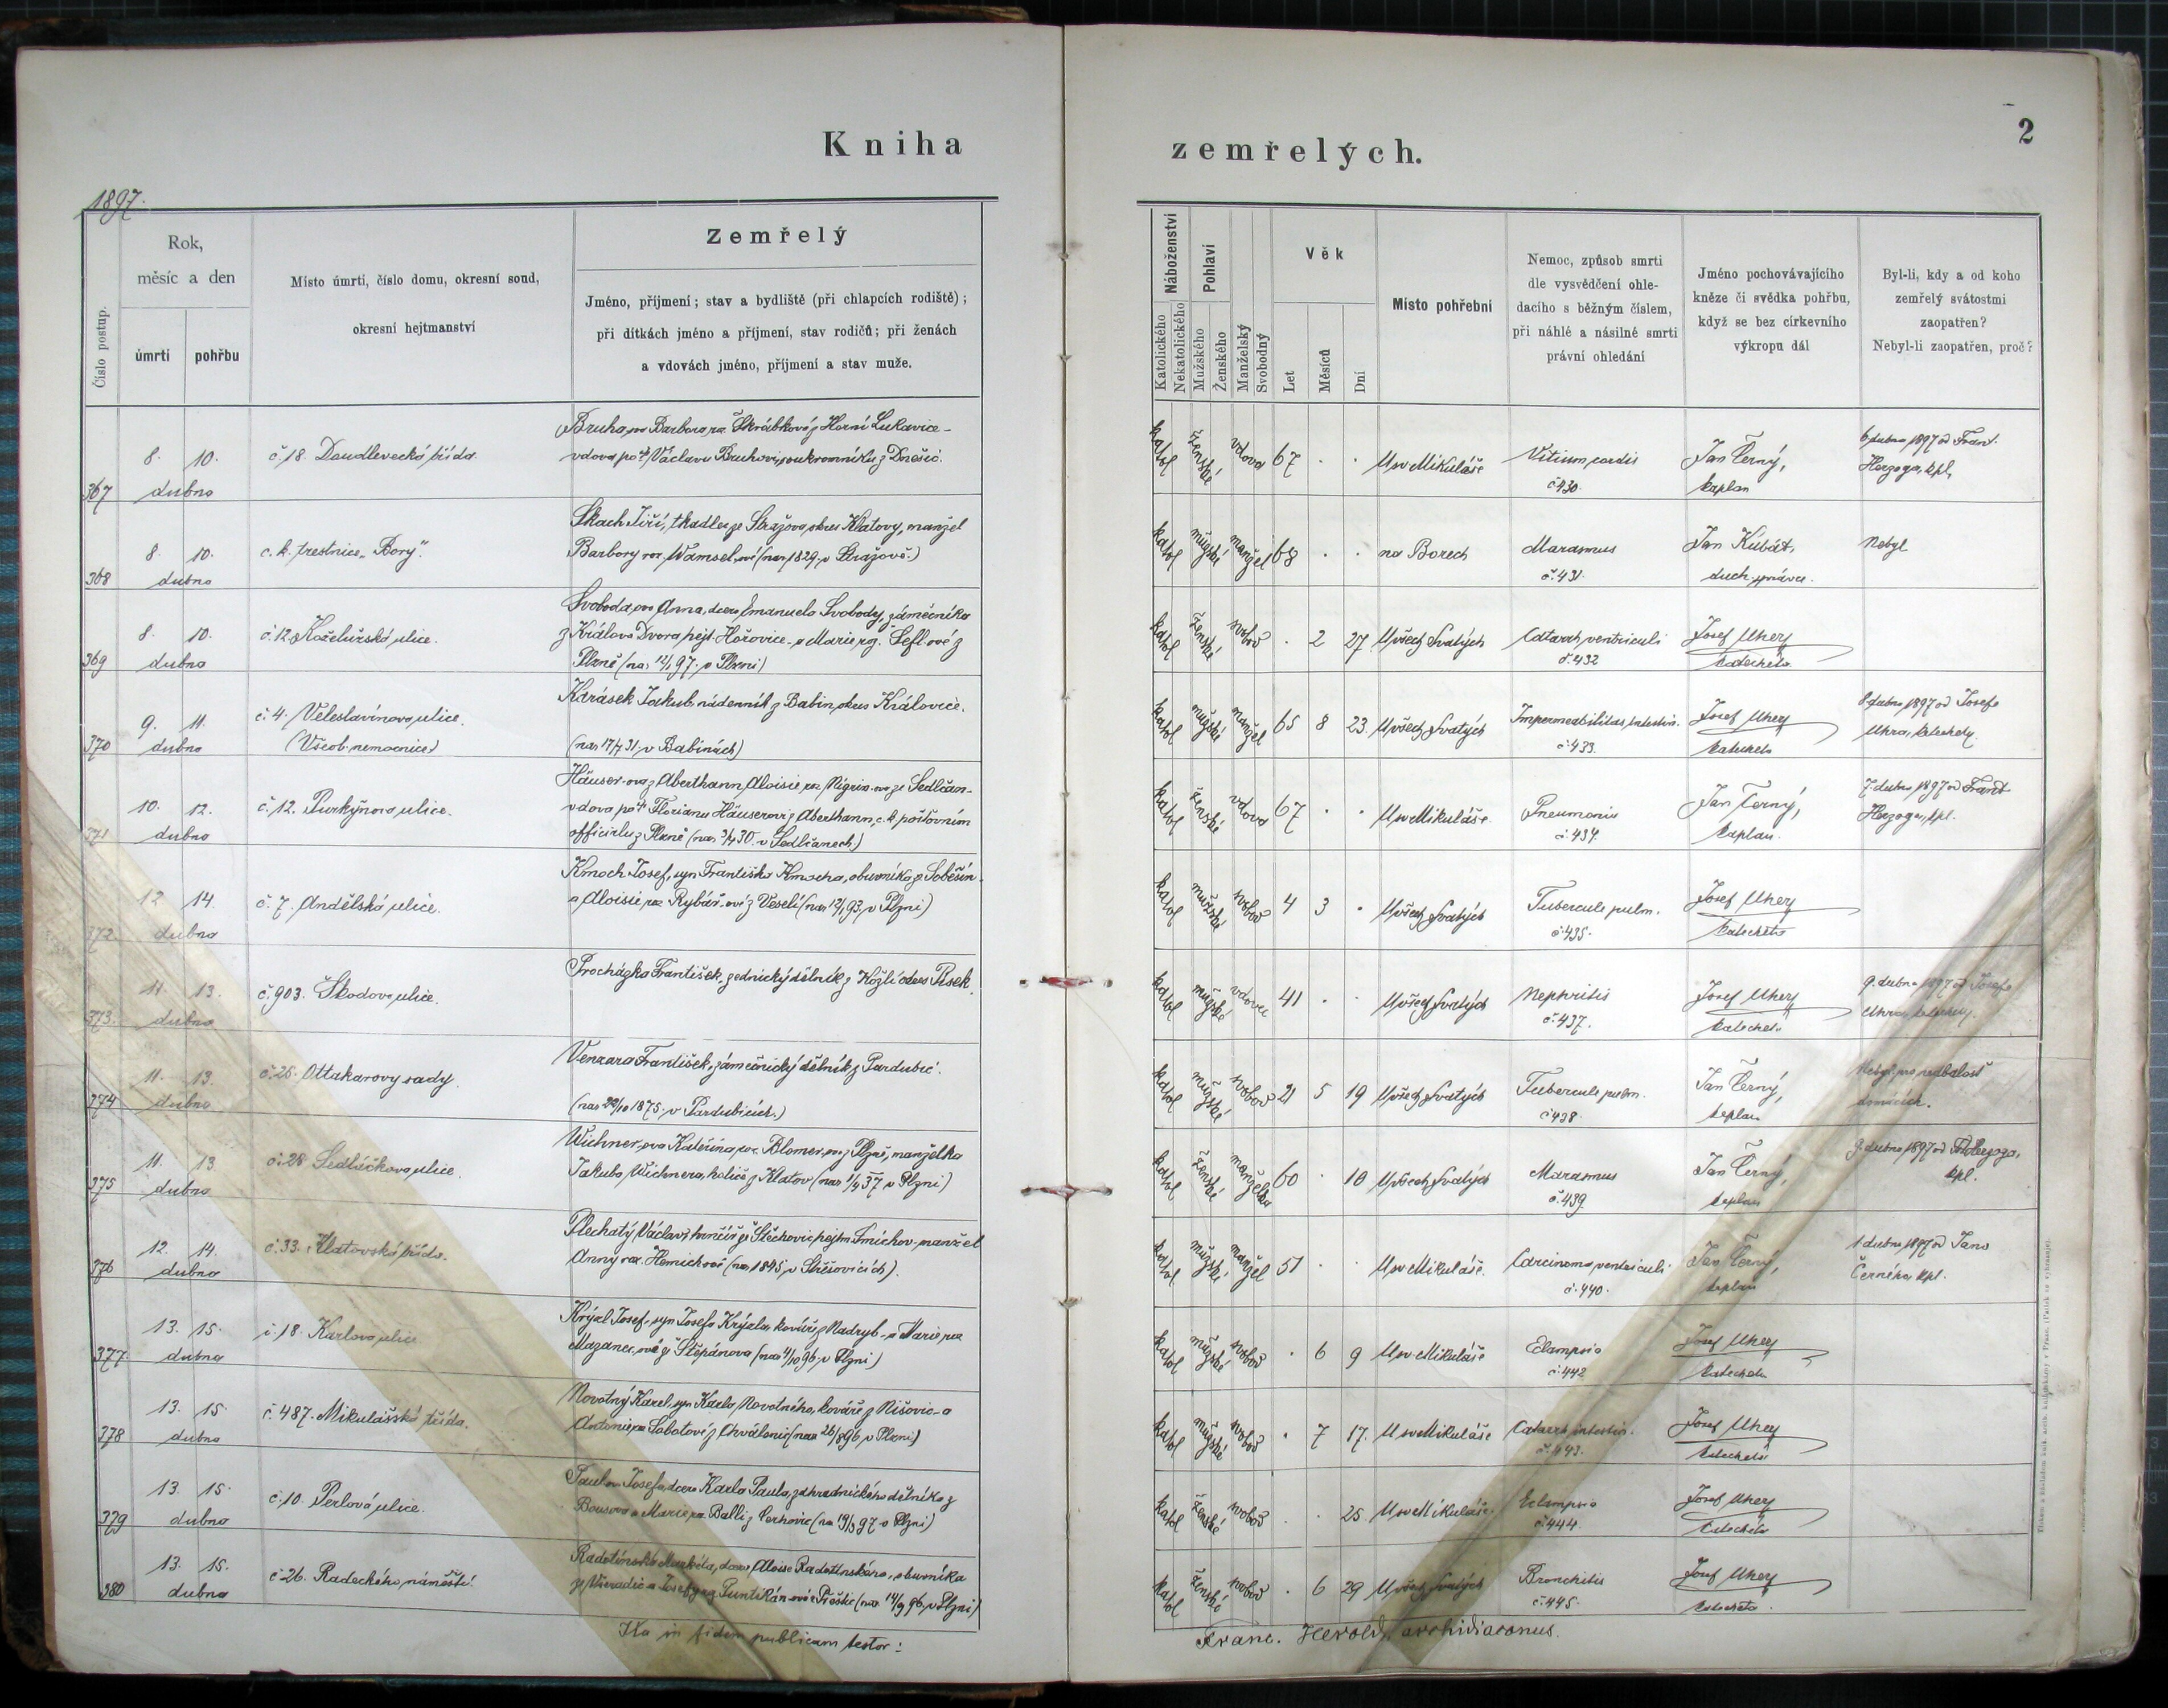 Kniha
zemřelých.
2
1897.
Číslo postup.
Rok,
měsíc a den
úmrtí
pohřbu
Místo úmrtí, číslo domu, okresní soud,
okresní hejtmanství
Zemřelý
Jméno, příjmení; stav a bydliště (při chlapcích rodiště);
při dítkách jméno a příjmení, stav rodičů; při ženách
a vdovách jméno, příjmení a stav muže.
Náboženství
Katolického
Nekatolického
Pohlaví
Mužského
Ženského
Manželský
Svobodný
Věk
Let
Měsíců
Dní
Místo pohřební
Nemoc, způsob smrti
dle vysvědčení ohle-
dacího s běžným číslem,
při náhlé a násilné smrti
právní ohledání
Jméno pochovávajícího
kněze či svědka pohřbu,
když se bez církevního
výkropu dál
Byl-li, kdy a od koho
zemřelý svátostmi
zaopatřen?
Nebyl-li zaopatřen, proč?
367
8. 10.
dubna
č. 18. Doudlevecká třída.
Bruhova Barbora roz. Škrábkova z Horní Lukavice -
vdova po † Václavu Bruhovi, soukromníku z Dnešic.
katol ženské vdova 67 . . U sv Mikuláše
Vitium cordis
č 430.
Jan Černý,
kaplan
6 dubna 1897 od Frant.
Herzoga, kpl.
368
8. 10.
dubna
c. k. trestnice „Bory“.
Skach Jiří, tkadlec ze Strážova, okres Klatovy, manžel
Barbory roz. (nar. 1829 v Strážově.)
katol mužské manžel 68 . . na Borech
Marasmus
č. 431.
Jan Kubát,
duch. správce.
Nebyl
369
8. 10.
dubna
č. 12. Koželužská ulice.
Svobodova Anna, dcera Emanuela Svobody, zámečníka
z Králova Dvora hejt. Hořovice - a Marie roz. Šeflové z
Plzně (nar. 12/1 97. v Plzni)
katol ženské svobod . 2 27 U všech Svatých
Catarrh ventriculi
č. 432
Josef Uhery
katecheta
370
9. 11.
dubna
č. 4. Veleslavínova ulice.
(Všeob. nemocnice)
Karásek Jakub, nádenník z Babin, okres Kralovice.
(nar. 17/7 31. v Babinách)
katol mužské manžel 65 8 23. U všech Svatých
Impermeabilitas intestin.
č. 433.
Josef Uhery
katecheta
8 dubna 1897 od Josefa
Uhra, katechety.
371
10. 12.
dubna
č. 12. Purkyňova ulice.
Häuser-ova z Aberthann Aloisie roz. Nigrin-ova ze Sedlčan -
vdova po † Florianu Häuserovi z Aberthann, c. k. poštovním
officialu z Plzně (nar. 3/4 30. v Sedlčanech.)
katol ženské vdova 67 . . U sv Mikuláše.
Pneumonia
č. 434.
Jan Černý,
kaplan.
7. dubna 1897 od Frant
Herzoga, kpl.
372.
12 14.
dubna
č. 7. Andělská ulice.
Kmoch Josef, syn Františka Kmocha, obuvníka ze Soběšín
a Aloisie roz. Rybář-ové z Veselí (nar. 12/1 93, v Plzni)
katol mužské svobod 4 3 . U všech Svatých
Tubercule pulm.
č. 435.
Josef Uhery
katecheta
373.
11. 13.
dubna
č. 903. Škodova ulice.
Procházka František, zednický dělník z Kožlí okres Písek.
katol mužské vdovec 41 . . U všech Svatých
Nephritis
č. 437.
Josef Uhery
katecheta
9. dubna 1897 od Josefa
Uhra, katechety.
374
11. 13.
dubna
č. 26. Ottakarovy sady.
Venzara František, zámečnický dělník z Pardubic.
(nar. 22/10 1875, v Pardubicích.)
katol mužské svobod 21 5 19 U všech Svatých
Tubercule pulm.
č 438.
Jan Černý,
kaplan
Nebyl pro nedbalost
domácích.
375
11. 13.
dubna
č. 28. Sedláčkova ulice.
Wichner-ova Kateřina roz. Blomer-ova z Plzně, manželka
Jakuba Wichnera, holiče z Klatov (nar. 1/4 37 v Plzni)
katol ženské manželka 60 . 10 U všech Svatých
Marasmus
č. 439.
Jan Černý,
kaplan
9. dubna 1897 od Fr. Herzoga,
kpl.
376
12. 14.
dubna
č. 33. Klatovská třída.
Plechatý Václav, z Štěchovic hejtm Smíchov, manžel
Anny roz. (nar. 1845, v Střešovicích).
katol mužské manžel 51 . . U sv Mikuláše.
Carcinoma ventriculi.
č. 440.
Jan Černý,
kaplan
1 dubna 1897 od Jana
Černého, kpl.
377.
13. 15.
dubna
č. 18. Karlova ulice
Krýzl Josef, syn Josefa Krýzla, kováře z Nadryb - a Marie roz
Mazanec-ové z Štěpánova (nar. 4/10 96, v Plzni)
katol mužské svobod . 6 9 U sv Mikuláše
Eclampsia
č. 442
Josef Uhery
katecheta
378
13. 15.
dubna
č. 487. Mikulášská třída.
Novotný Karel, syn Karla Novotného, kováře z Mišovic - a
Antonie roz. Sobotové z Chválenic (nar. 26/8 96, v Plzni)
katol mužské svobod . 7 17. U sv Mikuláše
Catarrh intestin.
č. 443.
Josef Uhery
katecheta
379
13. 15.
dubna
č. 10. Perlová ulice.
Paulova Josefa, dcera Karla Paula, zahradnického dělníka z
Bousova a Marie roz. Balli z Cerhovic (nar 19/3 97 v Plzni)
katol ženské svobod . . 25. U sv Mikuláše.
Eclampsia
č. 444.
Josef Uhery
katecheta
380
13. 15.
dubna
č. 26. Radeckého náměstí.
Radotínská Markéta, dcera Aloise Radotínského, obuvníka
ze Všeradic a Josefy roz. Puntikán-ové z Přeštic (nar. 14/9 96, v Plzni)
katol ženské svobod . 6 29 U všech Svatých
Bronchitis
č. 445.
Josef Uhery
katecheta.
Ita in fidem publicam testor:
Franc. Herold, archidiaconus.